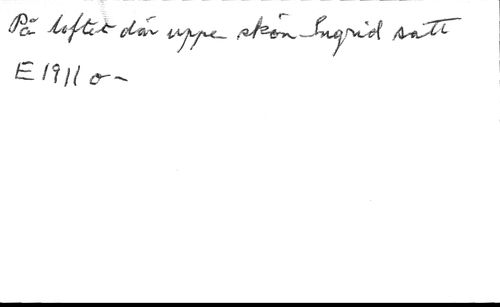 På loftet där uppe skön Ingrid satt
E 1911 o-